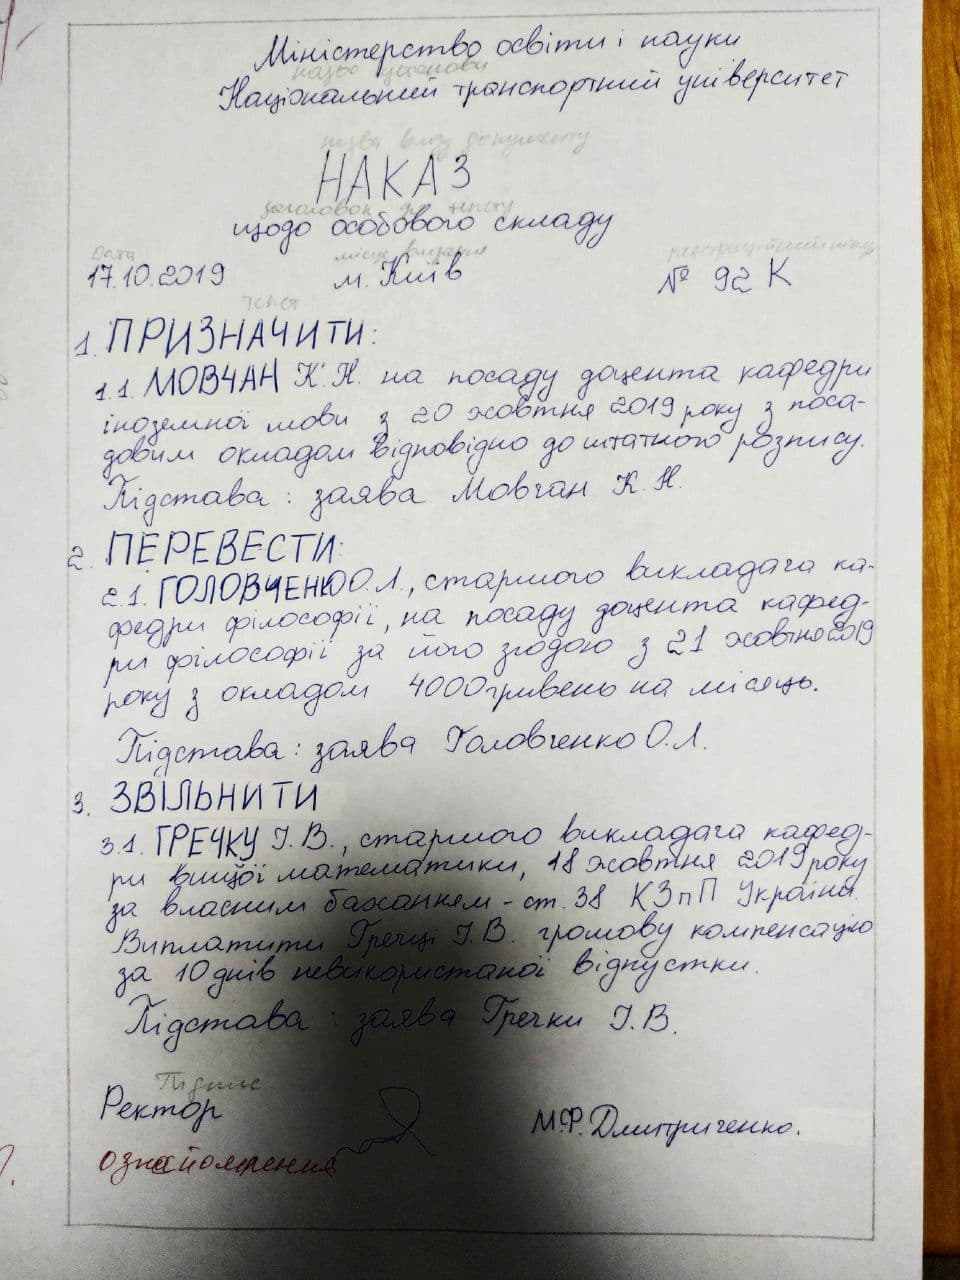 Міністерство освіти і науки
назва установи
Національний транспортний університет
назва виду документу
НАКАЗ
заголовок до тексту
щодо особового складу
Дата місце видання реєстраційний індекс
17.10.2019 м. Київ № 92 К
Текст
1. ПРИЗНАЧИТИ:
1.1. МОВЧАН К.Н. на посаду доцента кафедри
іноземної мови з 20 жовтня 2019 року з поса-
довим окладом відповідно до штатного розпису.
Підстава: заява Мовчан К.Н.
2. ПЕРЕВЕСТИ:
2.1. ГОЛОВЧЕНЮ О.Л., старшого викладача ка-
федри філософії, на посаду доцента кафед-
ри філософії за його згодою з 21 жовтня 2019
року з окладом 4000 гривень на місяць.
Підстава: заява Головченко О.Л.
3. ЗВІЛЬНИТИ
3.1. ГРЕЧКУ І.В., старшого викладача кафед-
ри вищої математики, 18 жовтня 2019 року
за власним бажанням - ст. 38 КЗпП України.
Виплатити Гречці І.В. громову компенсацію
за 10 днів невикористаної відпустки.
Підстава: заява Гречки І.В.
Підпис
Ректор М.Ф. Дмитриченко.
ознайомлення